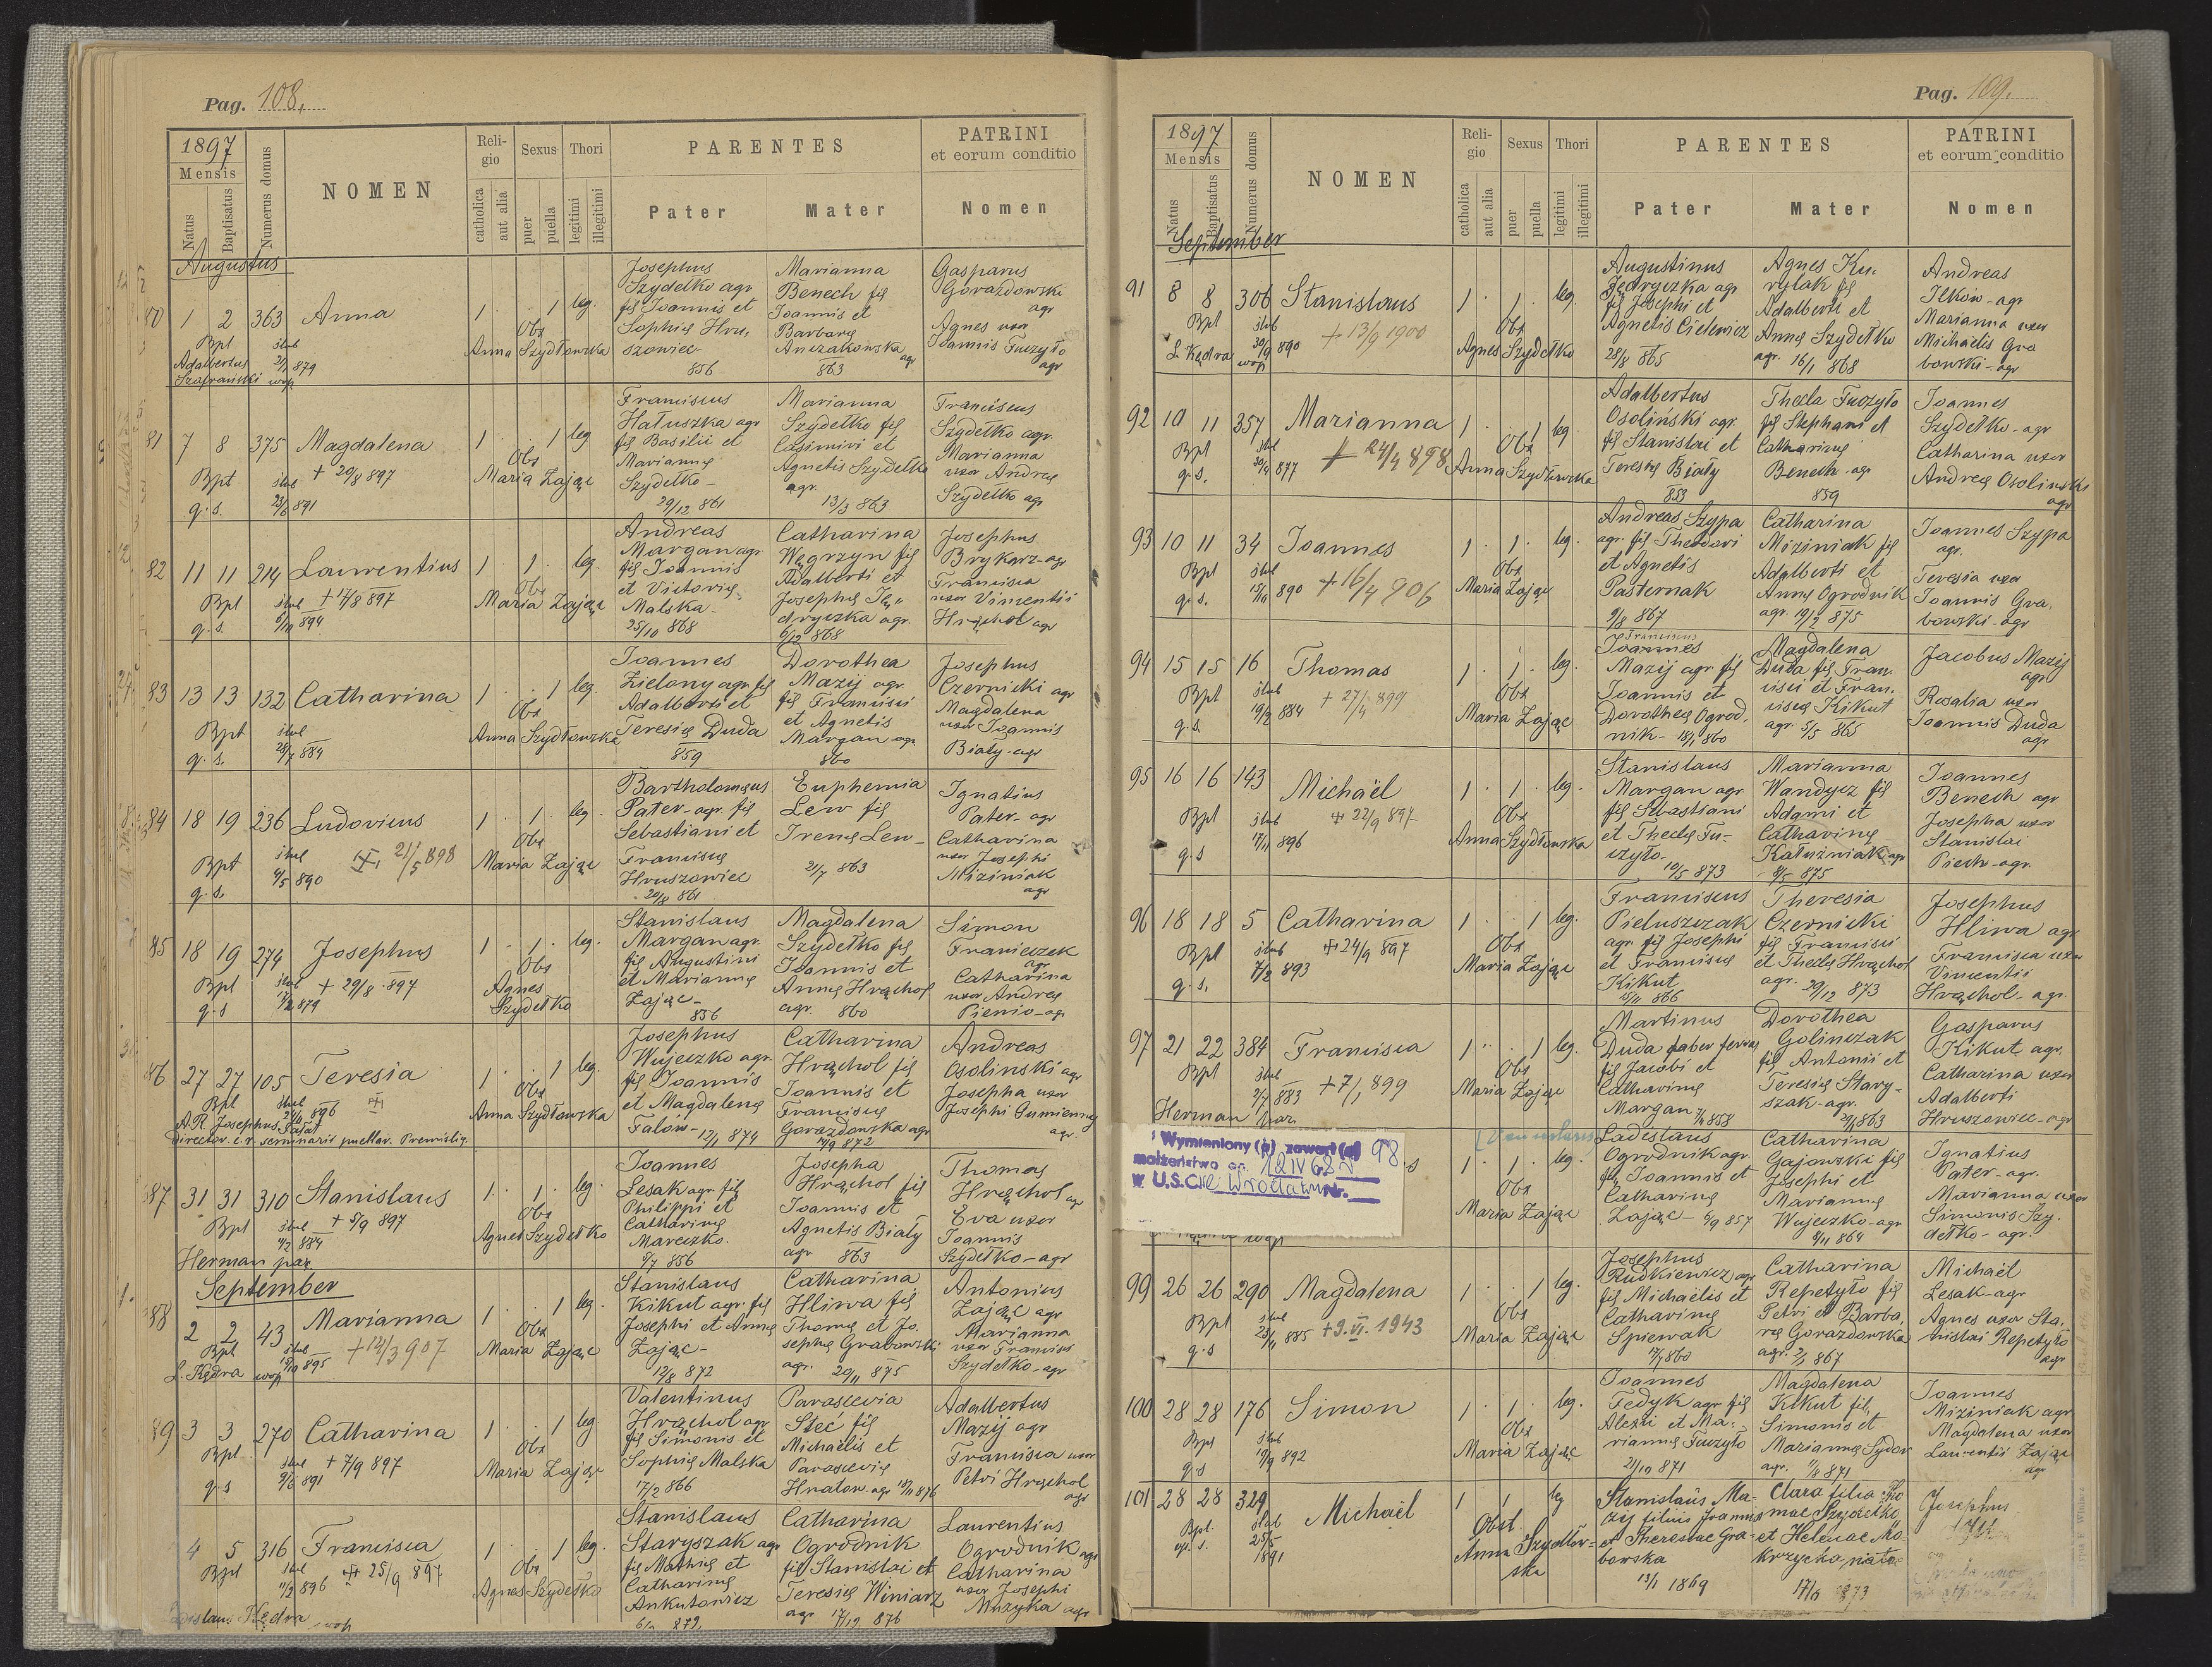 Pag. 108.
1897
Mensis
Natus
Baptisatus
Numerus domus
NOMEN
Religio
catholica
aut alia
Sexus
puer
puella
Thori
legitimi
illegitimi
PARENTES
Pater
Mater
PATRINI
et eorum conditio
Nomen
Augustus
80 1 2 363 Anna 1 . . 1 leg.
Bpt
Adalbertus
Szafrański
879
Obs
Anna Szydłowska
Josephus
Szydełko agr
fil Joannis et
Sophię Hru-
szowiec
856
Marianna
Benech fil
Joannis et
Barbarę
863
Gasparus
Gorazdowski
agr
Agnes uxor
Joannis Tuczyło
agr
81 7 8 375 Magdalena 1 . . 1 leg
+ 20/8 897
Bpt
q. s.
891
Obs
Maria Zając
Franciscus
Hałuszka agr
fil Basilii et
Mariannę
Szydełko-
29/12 861
Marianna
Szydełko fil
Casimiri et
Agnetis Szydełko
agr.
13/3 863
Franciscus
Szydełko agr.
Marianna
uxor Andreę
Szydełko agr
82 11 11 214 Laurentius 1 . 1 . leg.
Bpt
q. s.
894
Obs
Maria Zając
Andreas
Margan agr
fil Joannis
et Victorię
Malska-
25/10 868
Catharina
Węgrzyn fil
Adalberti et
Josephę Ję-
dryczka agr.
6/12 868
Josephus
Brykarz-agr
Francisca
uxor Vincentii
Hrąchol agr
83 13 13 132 Catharina 1 . . 1 leg.
Bpt
q. s.
884
Obs
Anna Szydłowska
Joannes
Zielony agr. fil
Adalberti et
Teresię Duda
859
Dorothea
Mazij agr.
fil Francisci
et Agnetis
Margan agr.
860
Josephus
Czernicki agr
Magdalena
uxor Joannis
Biały-agr
84 18 19 236 Ludovicus 1 . 1 . leg.
21/5 898
Bpt
q. s.
890
Obs
Maria Zając
Bartholomęus
Pater-agr. fil
Sebastiani et
Franciscę
Hruszowiec
20/8 861
Euphemia
Lew fil
Irenę Lew-
2/7 863
Ignatius
Pater-agr
Catharina
uxor Josephi
Miziniak
agr
85 18 19 274 Josephus 1 . 1 . leg.
+ 29/8 897
Bpt
q. s
879
Obs
Agnes
Szydełko
Stanislaus
Margan agr.
fil Augustini
et Mariannę
Zając-
856
Magdalena
Szydełko fil
Joannis et
Annę Hrąchol
agr. 860
Simon
Franiczek
agr
Catharina
uxor Andreę
Pienio-agr
86 27 27 105 Teresia 1 . . 1 leg.
Bpt
896
A.R. Josephus
Director c.r. seminarii puellar. Premislię
Obs
Anna Szydłowska
Josephus
Wujeczko agr.
fil Joannis
et Magdalenę
Falów-12/1 874
Catharina
Hrąchol fil
Joannis et
Franciscę
Gorazdowska agr
872
Andreas
Osolinski agr
Josepha uxor
Josephi Gumienny
agr.
87 31 31 310 Stanislaus 1 . 1 . leg.
+ 5/9 897
Bpt
884
Herman par.
Obs
Agnes Szydełko
Joannes
Lesak agr. fil
Philippi et
Catharinę
Mareczko.
5/7 856
Josepha
Hrąchol fil
Joannis et
Agnetis Biały
agr 863
Thomas
Hrąchol agr
Eva uxor
Joannis
Szydełko-agr
September
88 2 2 43 Marianna 1 . . 1 leg.
+14/3 907
Bpt
895
L. Kędra wop
Obs
Maria Zając
Stanislaus
Kikut agr. fil
Josephi et Annę
Zając-
12/8 872
Catharina
Hliwa fil
Thomę et Jo-
sephę Grabowski
agr. 20/11 875
Antonius
Zając agr
Marianna
uxor Francisci
Szydełko-agr
89 3 3 270 Catharina 1 . . 1 leg
+ 7/9 897
Bpt
q. s
891
Obs
Maria Zając
Valentinus
Hrąchol agr
fil Simonis et
Sophię Malska
17/2 866
Parascevia
Steć fil
Michaëlis et
Parascevię
Adalbertus
Mazij agr
Francisca uxor
Petri Hrąchol
agr
4 5 316 Francisca 1 . . 1 leg.
25/9 897
Bpt
896
Kędra wop
Obs
Agnes Szydełko
Stanislaus
Staryszak agr
fil Mathię et
Catharinę
Ankutowicz
Catharina
Ogrodnik
fil Stanislai et
Teresię Winiarz
agr 876
Laurentius
Ogrodnik agr
Catharina
uxor Josephi
Muzyka agr
Pag. 109.
1897
Mensis
Natus
Baptisatus
Numerus domus
NOMEN
Religio
catholica
aut alia
Sexus
puer
puella
Thori
legitimi
illegitimi
PARENTES
Pater
Mater
PATRINI
et eorum conditio
Nomen
September
91 8 8 306 Stanislaus 1 . 1 . leg.
+13/9 1900
Bpt
L. Kędra wop
890
Obs
Agnes Szydełko
Augustinus
Jędryczka agr
fil Josephi et
Agnetis Cielewicz
28/8 865
Agnes Ku-
rylak fil
Adalberti et
Annę Szydełko
agr. 16/1 868
Andreas
Ilków-agr
Marianna uxor
Michaëlis Gra
bowski-agr
92 10 11 357 Marianna 1 . . 1 leg
+ 24/4 898
Bpt
q. s.
877
Obs
Anna Szydłowska
Adalbertus
Osoliński agr.
fil Stanislai et
Teresię Biały
853
Thecla Tuczyło
fil Stephani et
Catharinę
Benech-agr
859
Joannes
Szydełko-agr
Catharina uxor
Andreę Osolinski
agr
93 10 11 34 Joannes 1 . 1 . leg.
+16/4 906
Bpt
q. s.
890
Obs
Maria Zając
Andreas Szypa
agr. fil Theodori
et Agnetis
Pasternak
9/8 867
Catharina
Miziniak fil
Adalberti et
Annę Ogrodnik
agr. 19/2 875
Joannes Szypa
agr.
Teresia uxor
Joannis Gra-
bowski-agr
94 15 15 16 Thomas 1 . 1 . leg.
+ 27/4 899
Bpt
q. s.
884
Obs
Maria Zając
Franciscus
Joannes
Mazij agr fil
Joannis et
Dorotheę Ogrod-
nik-18/1 860
Magdalena
Duda fil Fran-
cisci et Fran-
ciscę Kikut
agr. 5/5 865
Jacobus Mazij
agr
Rosalia uxor
Joannis Duda
agr
95 16 16 143 Michaël 1 . 1 . leg.
22/9 897
Bpt
q. s
17/11 896
Obs
Anna Szydłowska
Stanislaus
Margan agr
fil Sebastiani
et Theclę Tu-
czyło-
10/5 873
Marianna
Wandycz fil
Adami et
Catharinę
Kałużniak agr
875
Joannes
Benech agr
Josepha uxor
Stanislai
Piech-agr.
96 18 18 5 Catharina 1 . . 1 leg.
24/9 897
Bpt
q. s.
7/2 893
Obs
Maria Zając
Franciscus
Pieluszczak
agr. fil Josephi
et Franciscę
Kikut
866
Theresia
Czernicki
fil Francisci
et Theclę Hrąchol
agr. 29/12 873
Josephus
Hliwa agr
Francisca uxor
Vincentii
Hrąchol-agr.
97 21 22 384 Francisca 1 . . 1 leg.
+7/1 899
Bpt
883
Herman par.
Obs
Maria Zając
Martinus
Duda faber ferr
fil Jacobi et
Catharinę
Margan 858
Dorothea
Golinczak
fil Antonii et
Teresię Stary-
szak-agr.
863
Gasparus
Kikut agr.
Catharina uxor
Adalberti
Hruszowiec-agr
Wymieniony (a) zawarł (a) 98
małżeństwo dn. 12 IV 62 r
w U.S.C. we Wrocławiu
1 . 1 . leg.
Obs
Maria Zając
Ladislaus
Ogrodnik agr
fil Joannis et
Catharinę
Zając-6/9 857
Catharina
Gajowski fil
Josephi et
Mariannę
Wujeczko-agr
8/11 864
Ignatius
Pater-agr.
Marianna uxor
Simonis Szy-
dełko-agr.
99 26 26 290 Magdalena 1 . . 1 leg.
+9.VI.1943
Bpt
q. s
885
Obs
Maria Zając
Josephus
Rudkiewicz agr
fil Michaëlis et
Catharinę
Spiewak
860
Catharina
Repetyło fil
Petri et Barba-
rę Gorazdowska
agr. 2/1 867
Michaël
Lesak-agr
Agnes uxor Sta-
nislai Repetyło
agr
100 28 28 176 Simon 1 . 1 . leg.
Bpt
q. s
19/9 892
Obs
Maria Zając
Joannes
Fedyk agr fil
Alexii et Ma-
riannę Tuczyło
21/10 871
Magdalena
Kikut fil.
Simonis et
Mariannę Sydor
agr. 871
Joannes
Miziniak agr
Magdalena uxor
Laurentii Zając
agr
101 28 28 329 Michaël 1 1 leg
Bpt.
1891
Obst.
Anna Szydłow-
ska
Stanislaus Ma-
zij filius Joannis
et Theresiae Gra-
bowska
13/1 1869
Clara filia Tho
mae Szydełko
et Helenae Mo
krzycka, natae
17/6 1873
Josephus